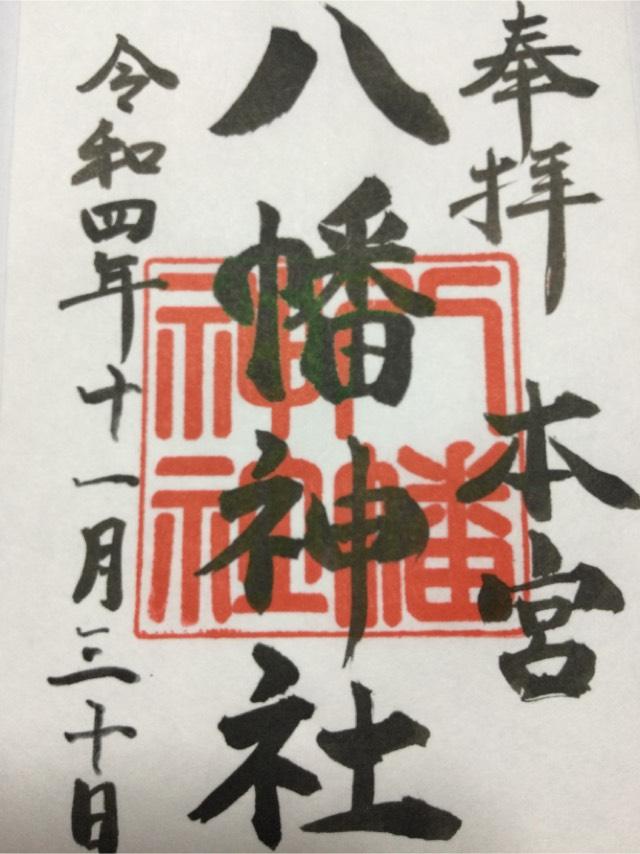 奉拝 本宮
八幡神社
八幡
神社
令和四年十一月三十日